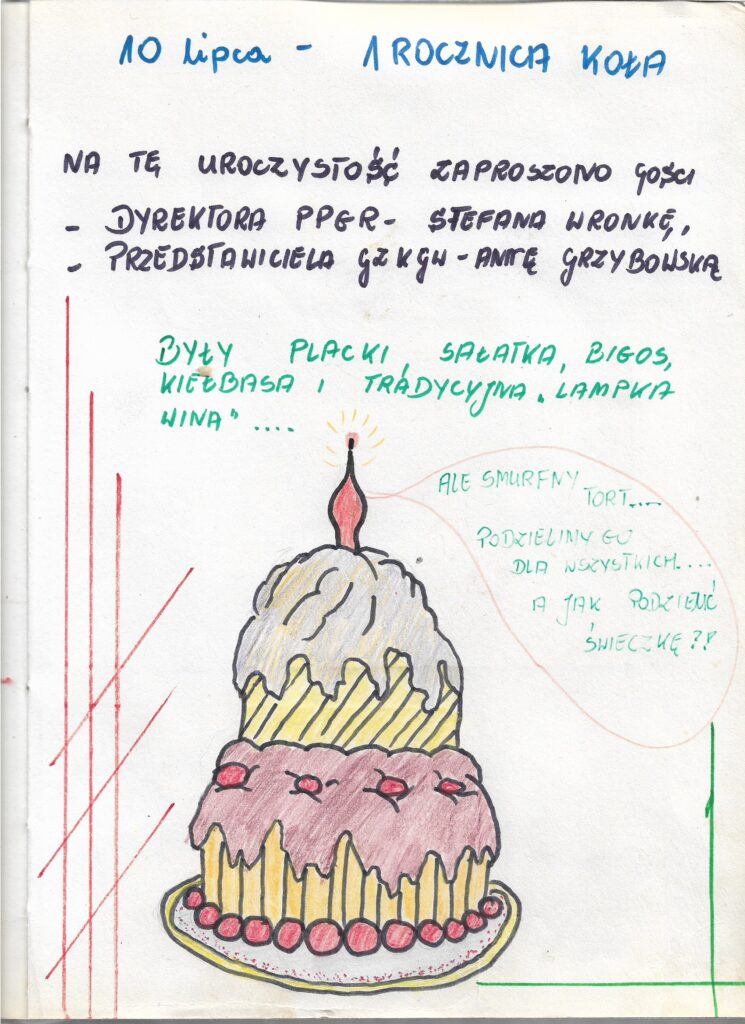 10 Lipca - 1 ROCZNICA KOŁA
NA TĘ UROCZYSTOŚĆ ZAPROSZONO GOŚCI
- DYREKTORA PPGR - STEFANA WRONKĘ,
- PRZEDSTAWICIELA GZKGW - ANITĘ GRZYBOWSKĄ
BYŁY PLACKI, SAŁATKA, BIGOS,
KIEŁBASA I TRADYCYJNA „LAMPKA
WINA" ....
ALE SMURFNY
TORT....
PODZIELIMY GO
DLA WSZYSTKICH....
A JAK PODZIELIĆ
ŚWIECZKĘ??